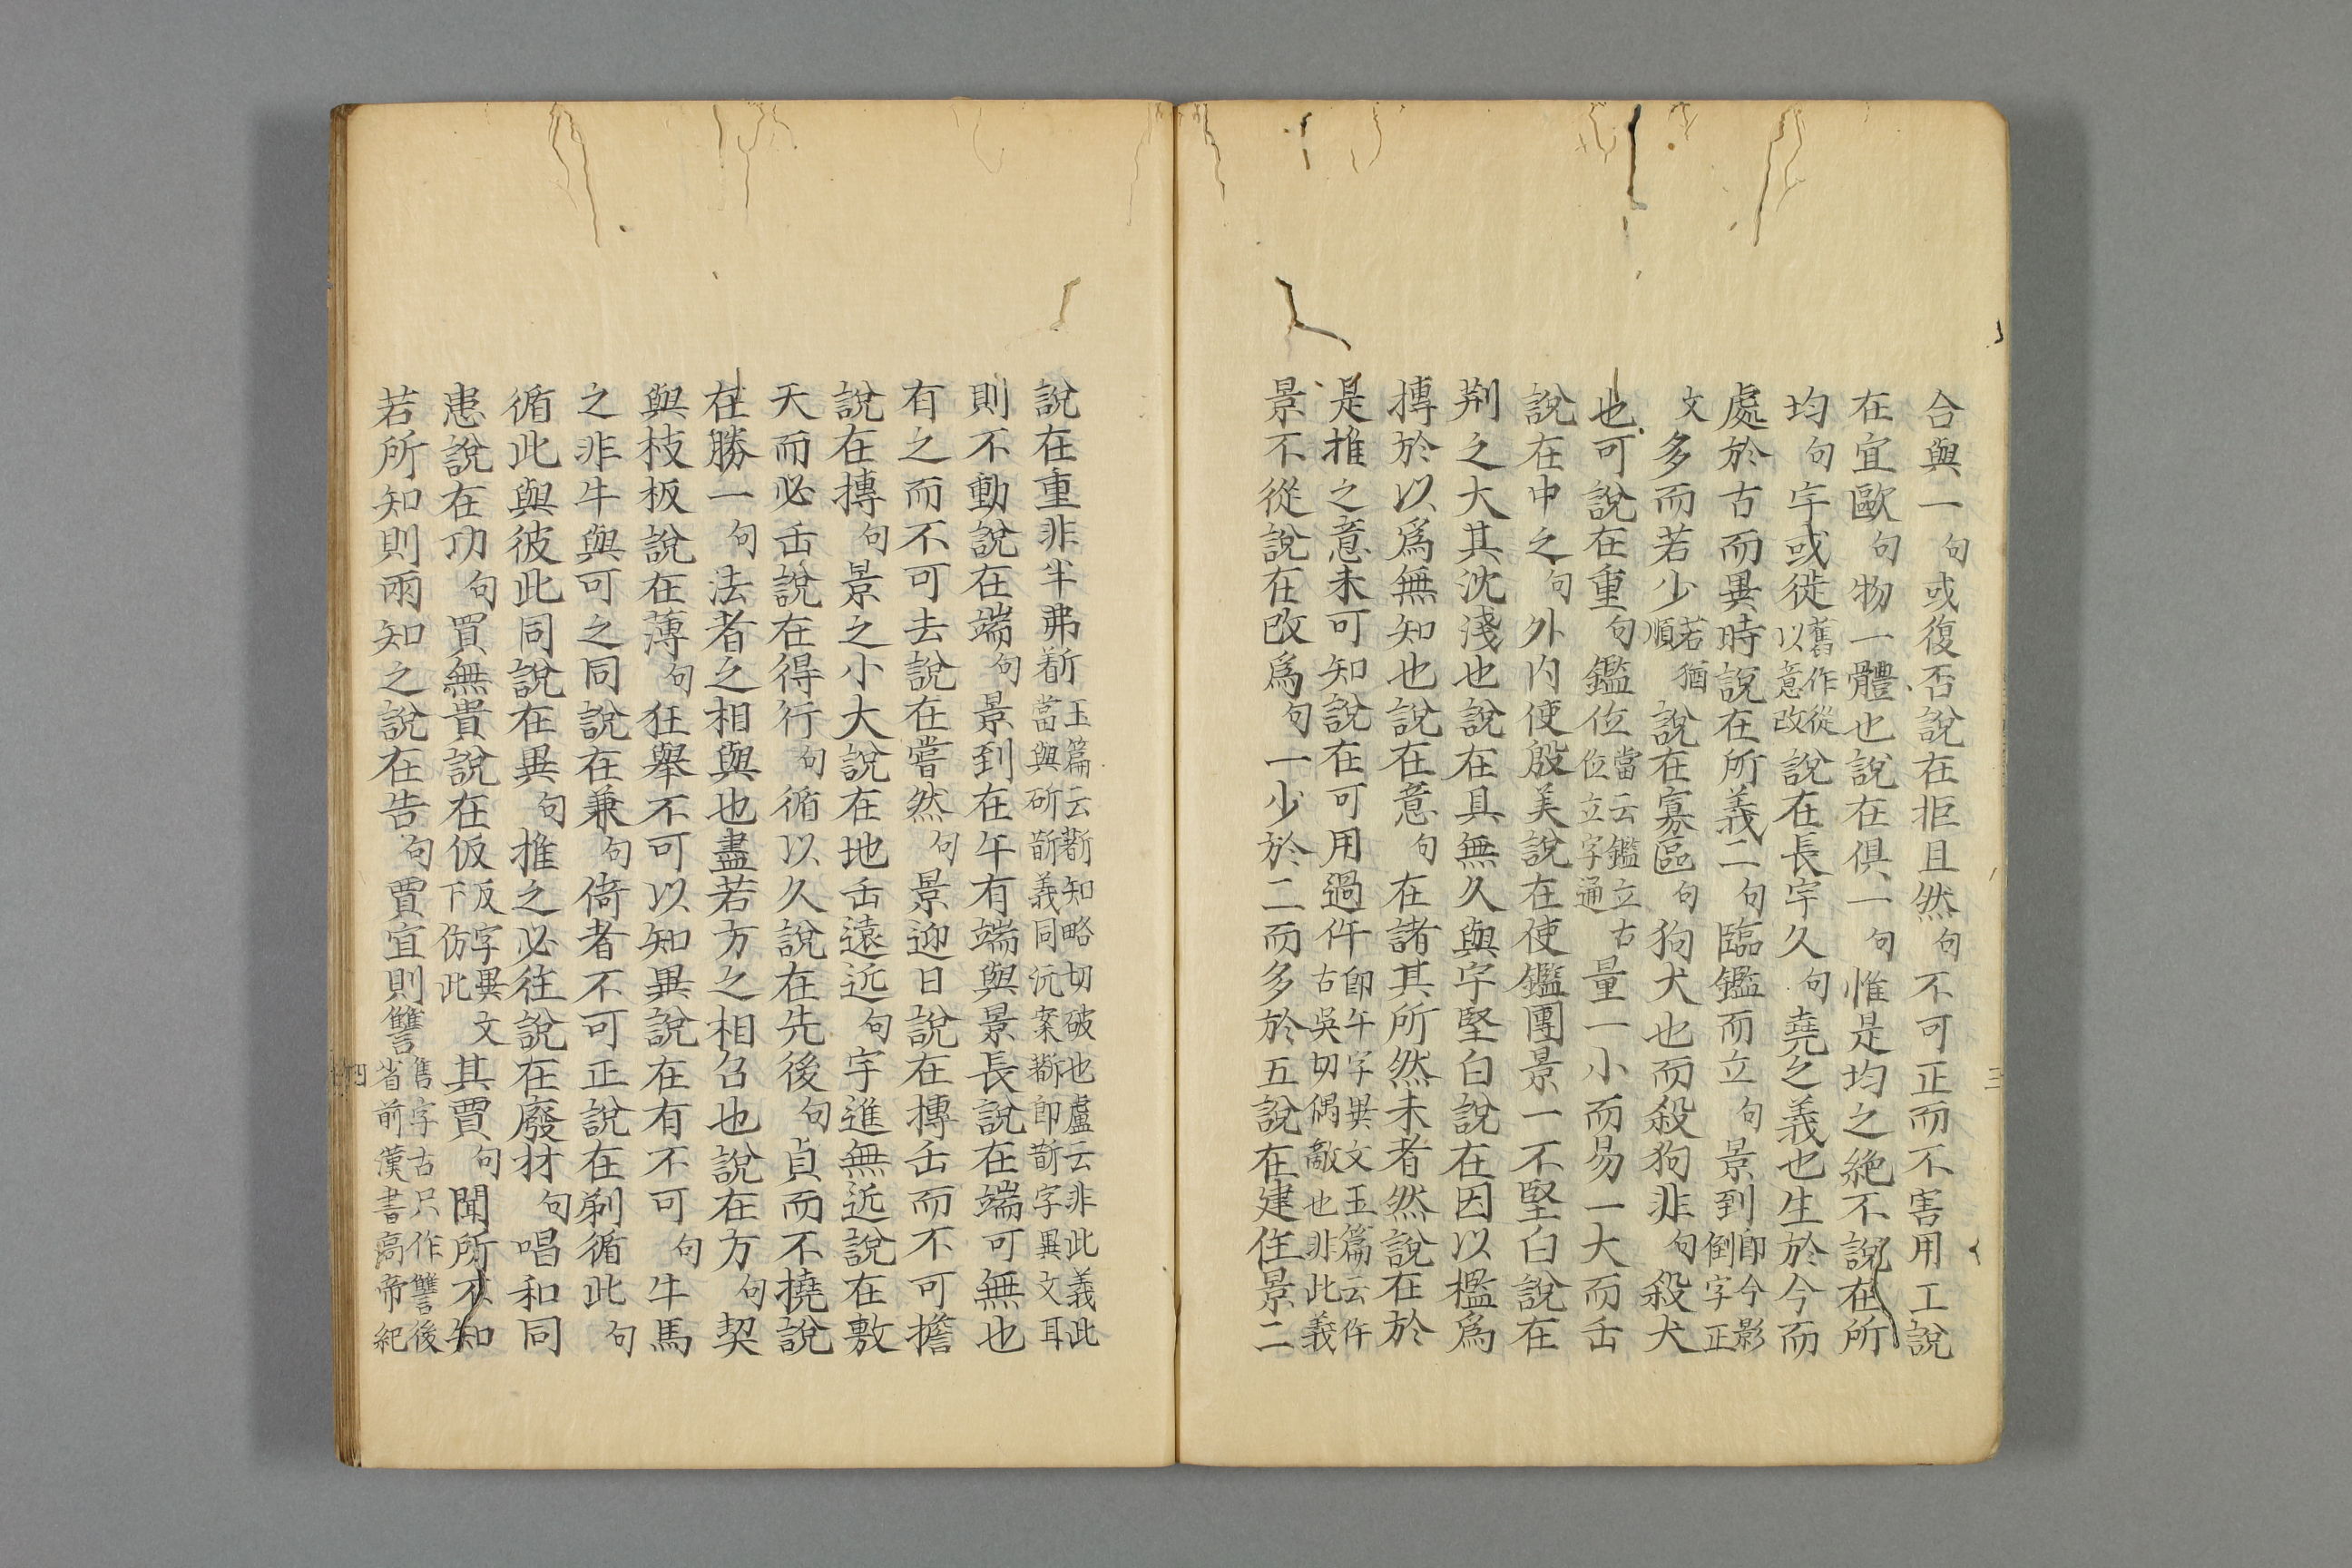 合與一句或復否說在拒且然句不可正而不害用工說
在宜歐句物一體也說在俱一句惟是均之絶不說在所
均句宇或徙舊作從以意改說在長宇久句堯之義也生於今而
處於古而異時說在所義二句臨鑑而立句景到即今影倒字正
文多而若少若猶順說在寡區句狗犬也而殺狗非句殺犬
也可說在重句鑑位當云鑑立古位立字通量一小而易一大而缶
說在中之句外内使殷美說在使鑑團景一不堅白說在
荆之大其沈淺也說在具無久與宇堅白說在因以檻爲
摶於以爲無知也說在意句在諸其所然未者然說在於
是推之意未可知說在可用過仵即午字異文玉篇云仵古吳切偶敵也非此義
景不從說在改爲句一少於二而多於五說在建住景二
三
說在重非半弗𣃈玉篇云𣃈知略切破也盧云非此義此當與斫斮義同沅案𣃈即斮字異文耳
則不動說在端句景到在午有端與景長說在端可無也
有之而不可去說在嘗然句景迎日說在摶缶而不可擔
說在摶句景之小大說在地缶遠近句宇進無近說在敷
天而必缶說在得行句循以久說在先後句貞而不撓說
在勝一句法者之相與也盡若方之相召也說在方句契
與枝板說在薄句狂舉不可以知異說在有不可句牛馬
之非牛與可之同說在兼句倚者不可正說在剃循此句
循此與彼此同說在異句推之必往說在廢材句唱和同
患說在功句買無貴說在仮反字異文下仿此其賈句聞所不知
若所知則兩知之說在告句賈宜則讐售字古只作讐後省前漢書高帝紀
四